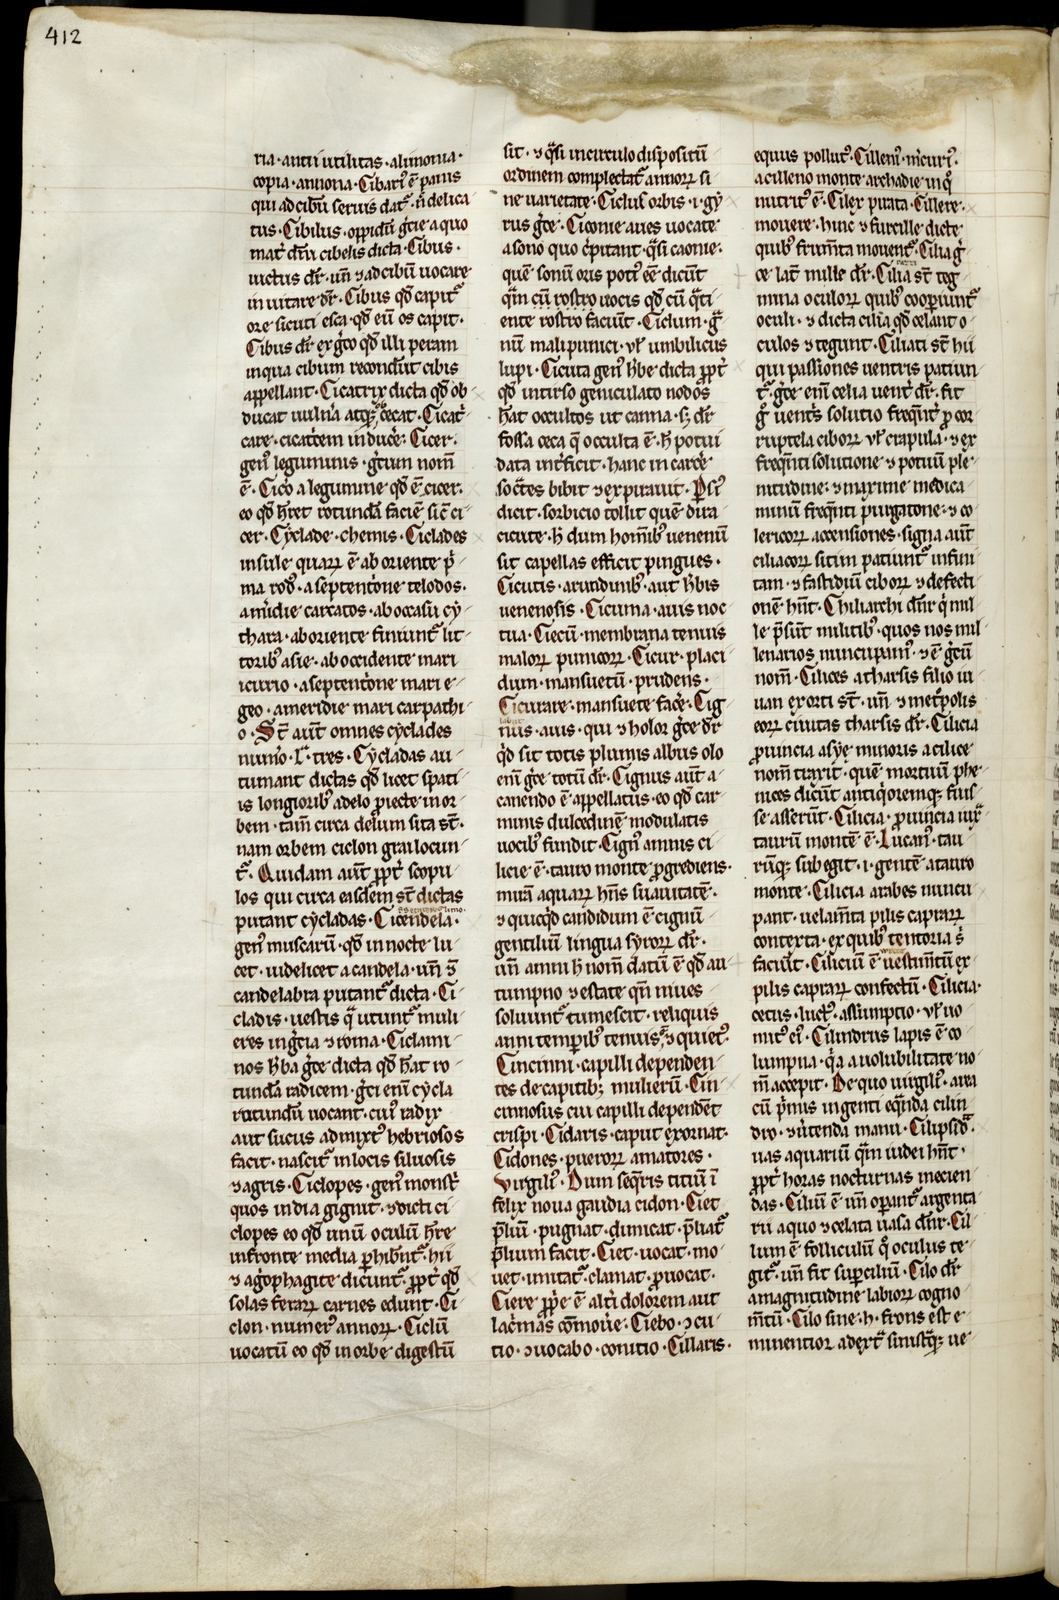 412
ria · antii utilitas · alimonia ·
copia · annona · Cibari᷒ ē panis
qui ad cibū seruis dat᷑ · ñ delica
tus · Cibilus · oppidū g̃cie a quo
mat̃ dm̃ cibelis dicta · Cibus ·
uictus dr̃ · uñ ⁊ ad cibū uocare
inuitare dr̃ · Cibus qđ capit᷑
ore sicuti esca · qđ eū os capit ·
Cibus dr̃ ex g̃co qđ illi peram
in qua cibum recondūt cibis
appellant · Cicatrix dicta qđ ob
ducat uulňa atqꝫ obcecat · Cicat̃
care · cicat̃cem induc̃e · Cicer ·
gen᷒ leguminis · g̃cum nom̄
ē · Cico a legumine qđ ē cicer ·
eo qđ h̃ret rotundā faciē sic̄ ci
cer · Cyclade · chemis · Ciclades
insule quaꝝ ē ab oriente p̃
ma rod᷒ · a septent̃one telodos ·
a mĩdie carcatos · ab occasu cy
thara · ab oriente finiunt᷑ lit
torib᷒ asie · ab occidente mari
icurio · a septent̃one mari e
geo · a meridie mari carpathi
o · St̄ aut̄ omnes cyclades
num̃o · l᷑ · tres · Cycladas au
tumant dictas qđ licet spati
is longiorib᷒ a delo piecte in or
bem · tam̄ circa delum sita st̄ ·
nam orbem ciclon grai locun
t᷑ · Quidam aut̄ ꝓpt̃ scopu
los qui circa easdem st̄ dictas
putant cycladas · Cicendela ·
gen᷒ muscarū · qđ in nocte lu
cet · uidelicet a candela · uñ ⁊
candelabra putant᷑ dicta · Ci
cladis · uestis q̃ utunt᷑ muli
eres in g̃cia ⁊ roma · Ciclami
nos h̃ba g̃ce dicta qđ h̃at ro
tundā radicem · g̃ci enī cycla
rotundū uocant · cui᷒ radix
aut sucus admixt᷒ hebriosos
facit · nascit᷑ in locis siluosis
⁊ agris · Ciclopes · gen᷒ monst̃
quos india gignit · ⁊ dicti ci
clopes eo qđ unū oculū h̃re
in fronte media phibnt᷑ · hii
⁊ agophagite dicunt᷑ · ꝓpt̃ qđ
solas feraꝝ carnes edunt · Ci
clon · numer᷒ annoꝝ · Ciclū
uocatū eo qđ in orbe digestū
sit · ⁊ q̃si in circulo dispositū
ordinem complectat᷑ annoꝝ si
ne uarietate · Ciclus᷒ orbis · i · gy
rus g̃ce · Ciconie aues uocate
a sono quo c̃pitant · q̃si caonie ·
quē sonū oris poti᷒ eē dicūt
q̃m cū rostro uocis qđ cū q̃ti
ente rostro faciūt · Ciclum · g̃
nū mali punici · ul̃ umbilicus
lupi · Cicuta gen᷒ h̃be dicta ꝓpt̃
qđ in tirso geniculato nodos
h̃at occultos ut canna · s; dr̃
fossa ceca q̄ occulta ē · h̄ potui
data int̃ficit · hanc in carc̃e
soc̃tes bibit ⁊ expirauit · Psi᷒
dicit · sorbicio tollit quē dira
cicute · h̄ dum hom̄ib᷒ uenenū
sit capellas efficit pingues ·
Cicutis · arundinib᷒ · aut h̃bis
uenenosis · Cicuma · auis noc
tua · Ciecū · membrana tenuis
maloꝝ punicoꝝ · Cicur · placi
dum · mansuetū · prudens ·
Cicurare · mansuete fac̃e · Cig
nus · auis · qui ⁊ holor g̃ce dr̃
qđ sit totis plumis albus olo
enī g̃ce totū dr̃ · Cignus aut̄ a
canendo ē appellatus · eo qđ car
minis dulcedinē modulatis
uocib᷒ fundit · Cign᷒ amnis ci
licie ē · tauro monte ꝓgrediens ·
mirā aquaꝝ hñs suauitatē ·
⁊ quicqđ candidum ē cignū
gentiliū lingua syroꝝ dr̃ ·
uñ amni h̄ nom̄ datū ē qđ au
tumpno ⁊ estate qñ niues
soluunt᷑ tumescit · reliquis
anni tempib᷒ tenuis ⁊ quiet᷒ ·
Cincinni · capilli dependen
tes de capitib; mulierū · Cin
cinnosus cui capilli dependēt
crispi · Cidaris · caput exornat ·
Cidones · pueroꝝ amatores ·
Virgili᷒ · Dum seq̃ris titiū ī
felix noua gaudia cidon · Ciet
p̃liū · pugnat · dimicat · p̃liat᷑
p̃lium facit · Ciet · uocat · mo
uet · imitat᷑ · clamat · ꝓuocat ·
Ciere ꝓp̃e ē alt̃i dolorem aut
lac̃mas cōmou̇e · Ciebo · ɔcu
tio · ɔuocabo · concutio · Cillaris ·
equus pollut᷒ · Cilleni᷒ · m̃curi᷒ ·
a cilleno monte archadie in q̊
nutrit᷒ ē · Cilex pirata · Cillere ·
mouere · hinc ⁊ furcille dicte
quib᷒ frum̄ta mouent᷑ · Cilia g̃
ce lat̄ mille dr̃ · Cilia st̄ teg
mina oculoꝝ quib᷒ coopiunt᷑
oculi · ⁊ dicta cilia qđ celant o
culos ⁊ tegunt · Ciliati st̄ hii
qui passiones uentris patiun
t᷑ · g̃ce enī celia uent̃ dr̃ · fit
g̊ uent̃s solutio freq̃nt̃ ꝓ cor
ruptela ciboꝝ ul̃ crapula · ⁊ ex
freq̃nti solutione ⁊ potuū ple
nitudine · ⁊ maxime medica
minū freq̃nti purgatone · ⁊ co
lericoꝝ accensiones · signa aut̄
ciliacoꝝ sitim patiunt᷑ infini
tam · ⁊ fastidiū ciboꝝ ⁊ defecti
onē hñt · Chiliarchi dñr q̇ mil
le p̃sūt militib᷒ · quos nos mil
lenarios nuncupam᷒ · ⁊ ē g̃cū
nom̄ · Cilices a tharsis filio iu
uan exorti st̄ · uñ ⁊ met̃polis
eoꝝ ciuitas tharsis dr̃ · Cilicia
ꝓuincia asye minoris a cilice
nom̄ traxit · quē mortuū phe
nices dicūt antiq̊remqꝫ fuis
se asserūt · Cilicia · ꝓuincia iux̃
taurū montē ē · Lucan᷒ · tau
rūqꝫ subegit · i · gentē a tauro
monte · Cilicia arabes nuncu
pant · uelam̄ta pilis capraꝝ
contexta · ex quib᷒ tentoria s̓
faciūt · Ciliciū ē uestim̄tū ex
pilis capraꝝ confectū · Cilicia ·
cetus · luct᷒ · assumptio · ul̃ uo
mit᷒ ei᷒ · Cilindrus lapis ē co
lumpna · q̃a a uolubilitate no
m̄ accepit · De quo uirgili᷒ · area
cū p̃mis ingenti eq̃nda cilin
dro · ⁊ ũtenda manu · Cilipsid̃ ·
uas aquariū q̃m iudei hñt ·
ꝓpt̃ horas nocturnas inecien
das · Ciliū ē uñ opant᷑ argenta
rii a quo ⁊ celata uasa dñr · Cil
lum ē folliculū q̊ oculus te
git᷑ · uñ fit supciliū · Cilo dr̃
a magnitudine labioꝝ cogno
m̄tū · Cilo sine · h · frons est e
minentior a dext̃ sinistq̃ꝫ ue